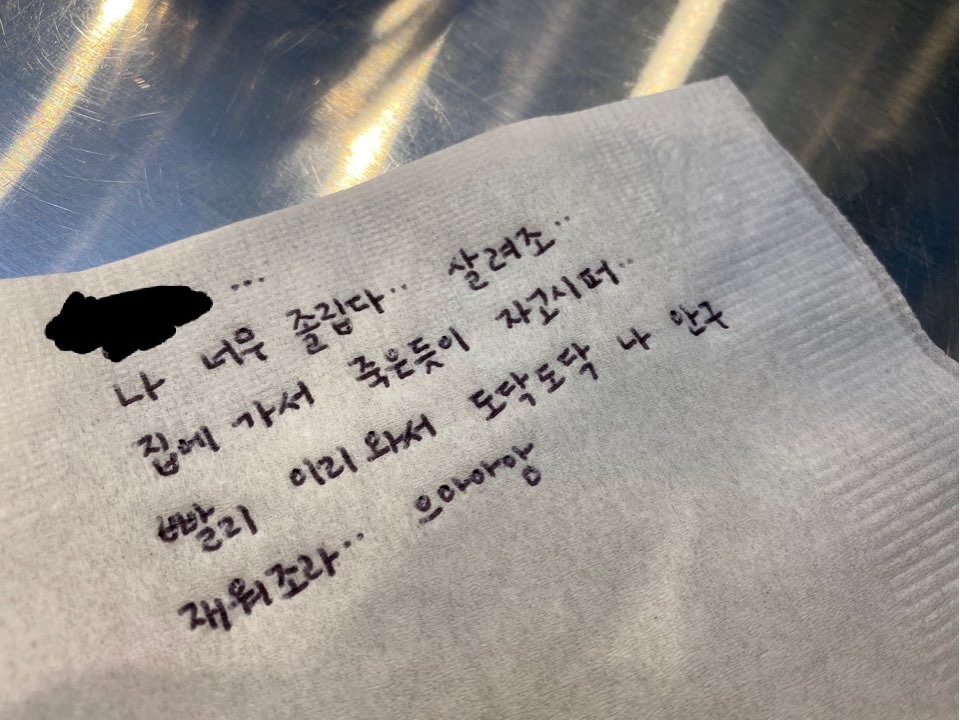 ...
나 너무 졸립다.. 살려조..
집에 가서 죽은듯이 자고시퍼..
빨리 이리와서 도닥도닥 나 안구
재워조라.. 으아아앙